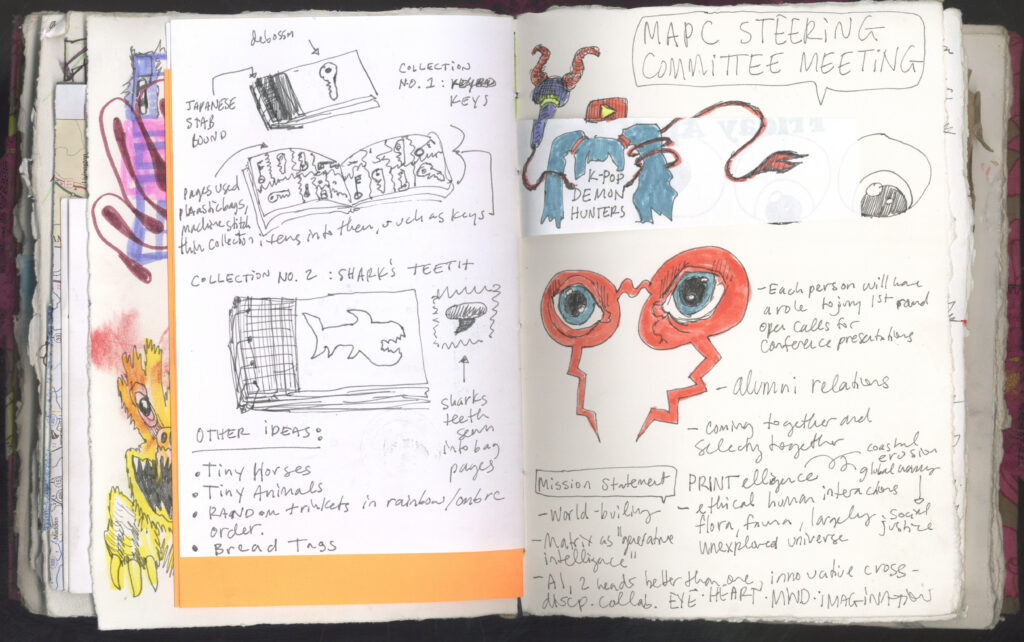 debossn
JAPANESE
STAB
BOUND
COLLECTION
NO. 1:
KEYS
Pages used
plansticbags,
machine stitch
thin collection items into them, such as keys
COLLECTION NO. 2 : SHARK'S TEETH
sharks
teeth
sewn
into bag
pages
OTHER IDEAS:
• Tiny Horses
• Tiny Animals
• RANDom trinkets in rainbow/ombre
order.
• Bread Tags
MAPC STEERING
COMMITTEE MEETING
K-POP
DEMON
HUNTERS
- Each person will have
a role to jury 1st round
open calls for
conference presentations
- alumni relations
- coming together and
selecting together
coastal
erosion
global warming
social
justice
Mission Statement
- World-builing
- Matrix as "generative
intelligence"
PRINTelligence
- ethical human interactions
flora, fauna, largely
unexplored universe
- AI, 2 heads better than one, innovative cross-
discp. collab. EYE · HEART · MIND · IMAGINATION